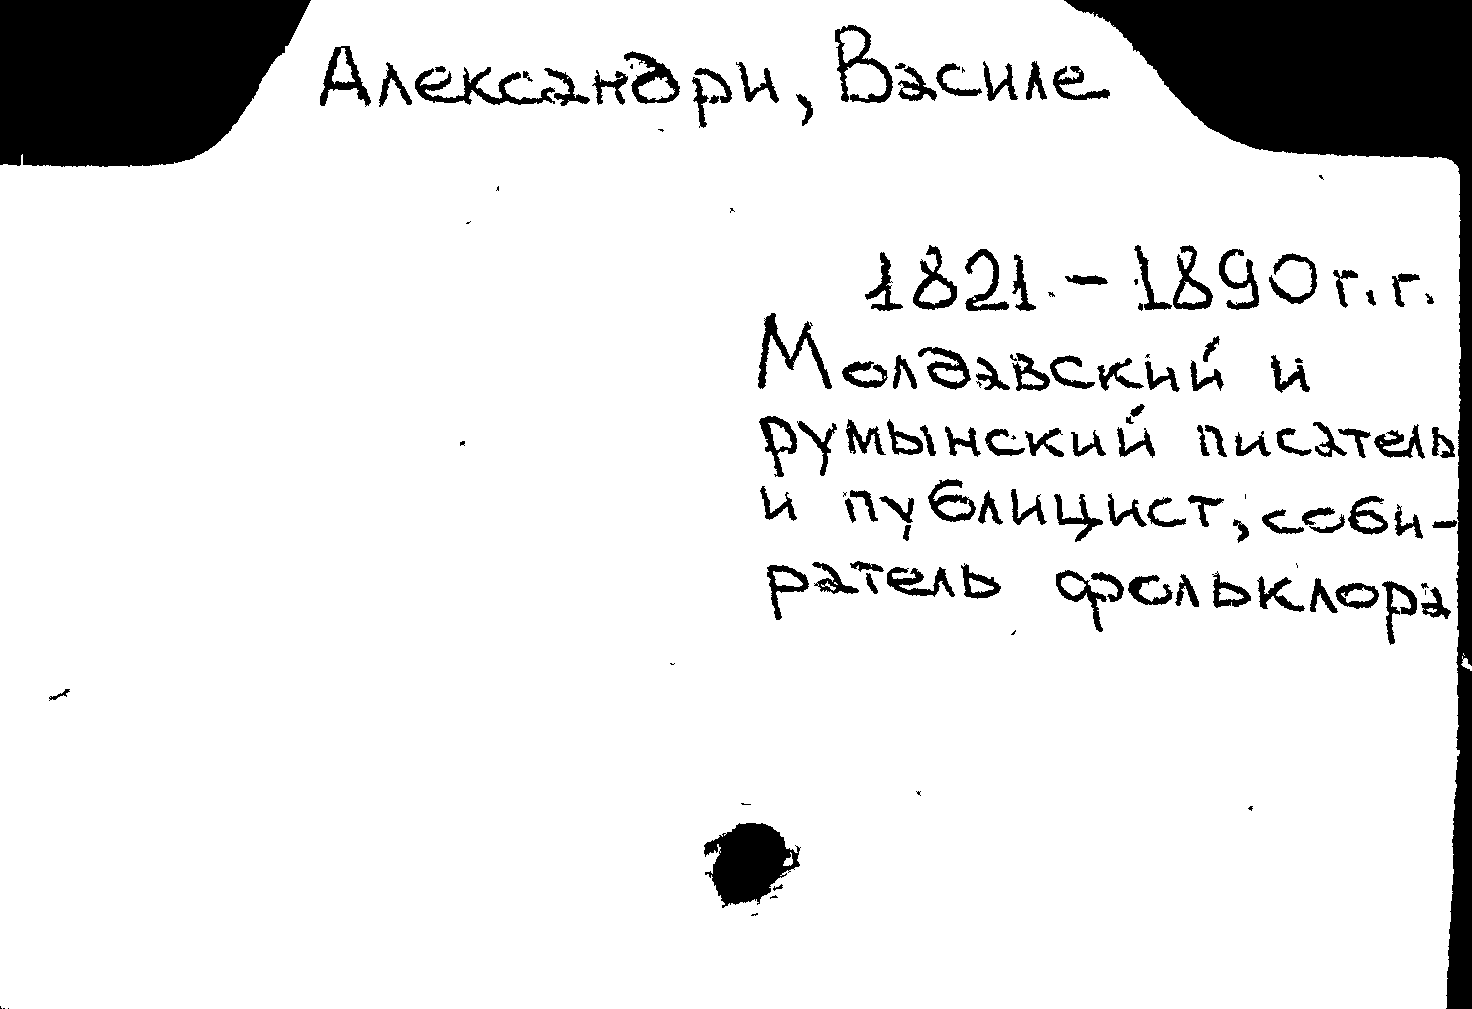 Александри, Василе
1821 - 1890 г. г.
Молдавский и
румынский писатель
и публицист, соби-
ратель фольклора